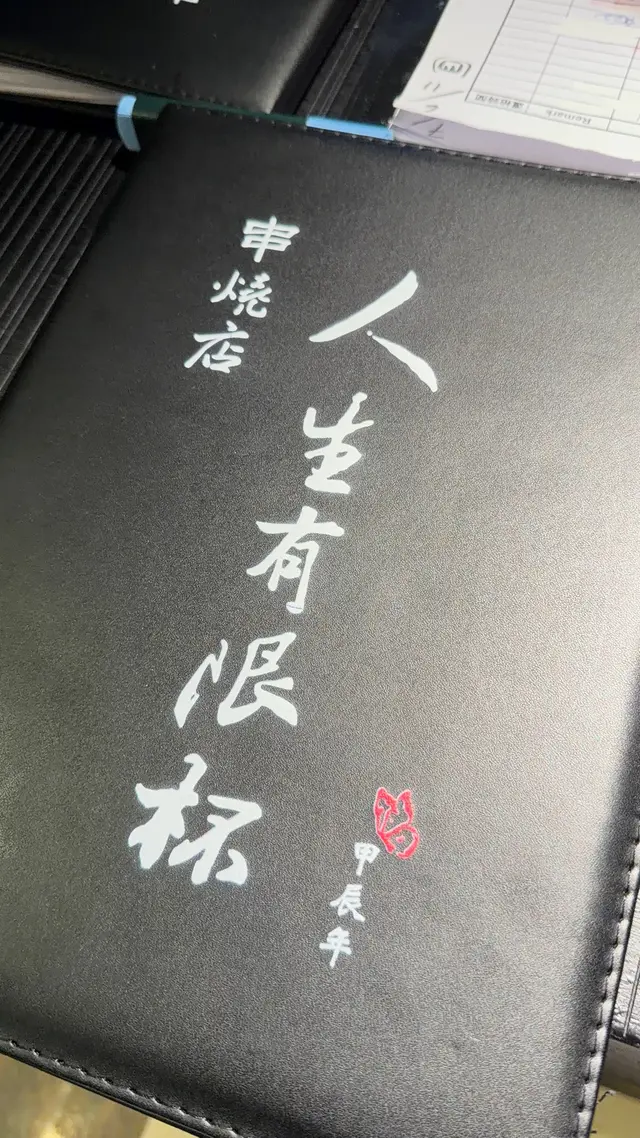 人生有限杯
串燒店
甲辰年
Remark